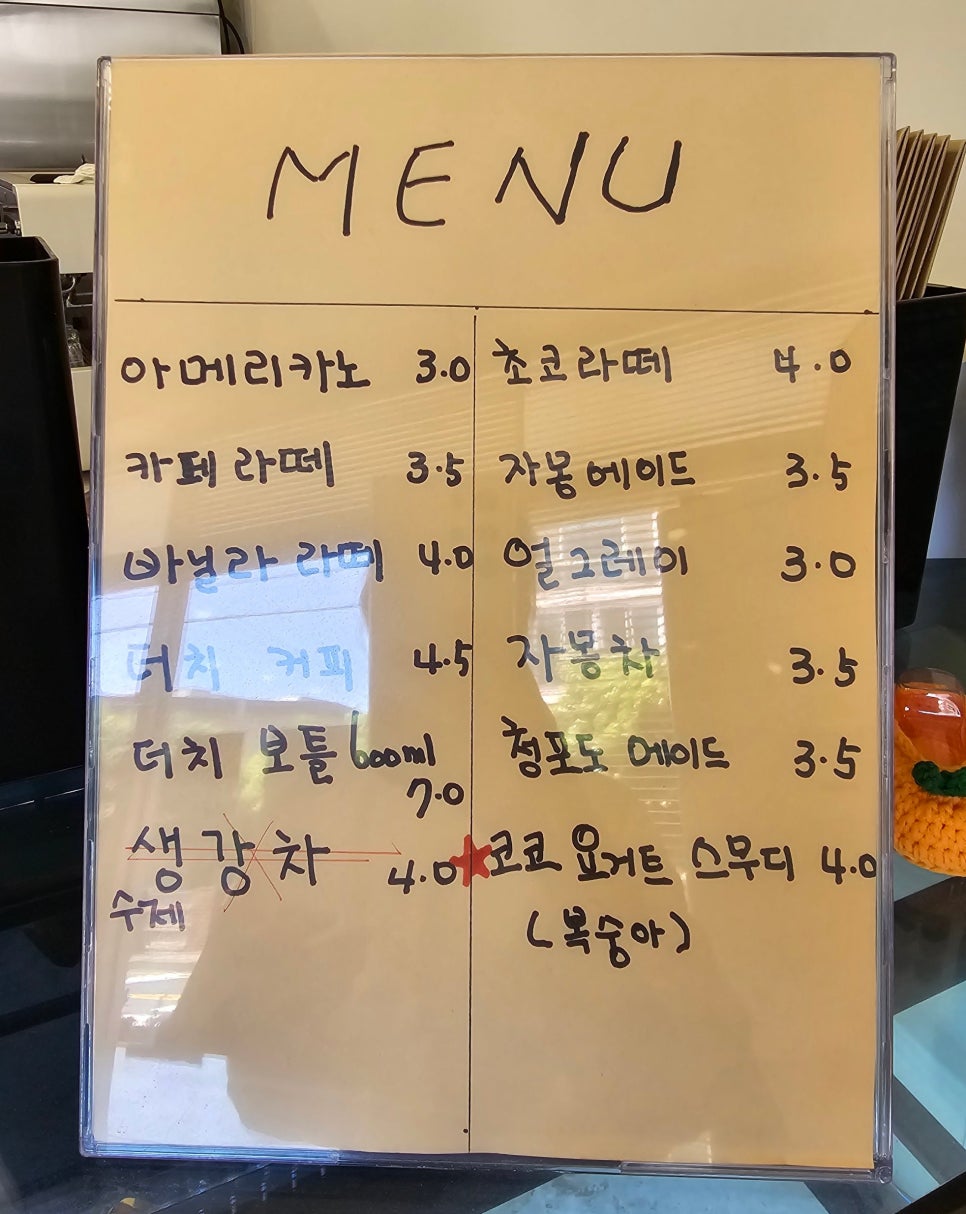 MENU
아메리카노 3.0
카페 라떼 3.5
바닐라 라떼 4.0
더치 커피 4.5
더치 보틀 600ml
7.0
생강차 4.0
수제
초코라떼 4.0
자몽에이드 3.5
얼그레이 3.0
자몽차 3.5
청포도 에이드 3.5
코코 요거트 스무디 4.0
(복숭아)